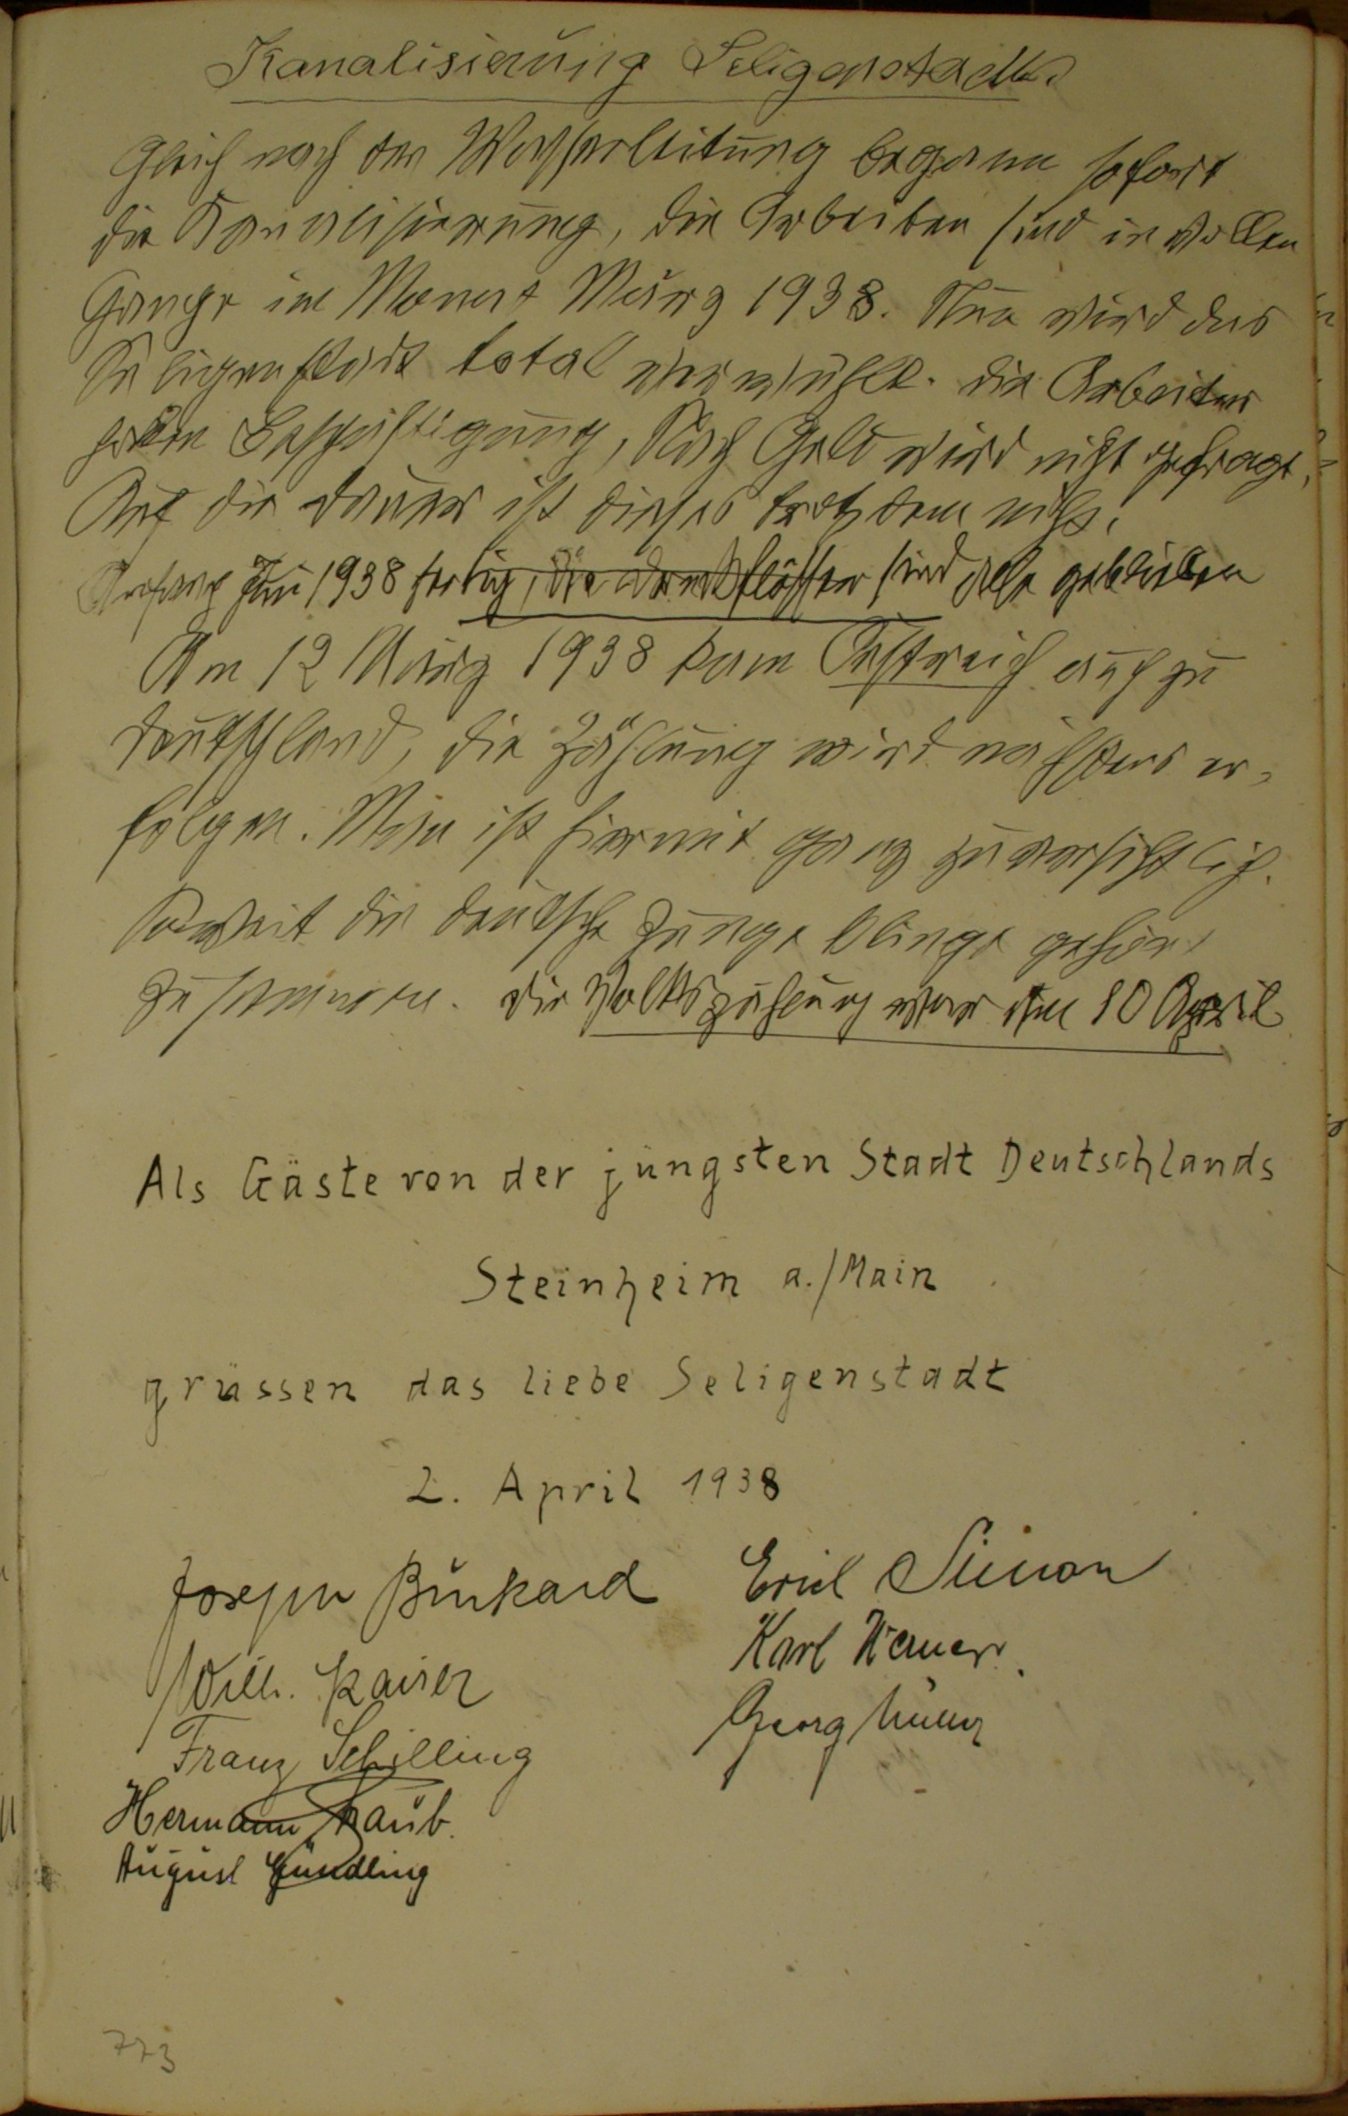 Kanalisierung Seligenstadts
Gleich nach der Wasserleitung begann sofort
die Kanalisierung, die Arbeiten sind in vollen
Gange im Monat März 1938. Nun wird das
Seligenstadt total verwühlt. Die Arbeiter
haben Beschäftigung, Nach Geld wird nicht gefragt.
Auf die Dauer ist dieses trotzdem nichts.
Anfang Juni 1938 fertig, die sind alle geblieben
Am 12 März 1938 kam Östreich auch zu
Deutschland, die Zählung wird nächstens er-
folgen. Man ist hiermit ganz zuversichtlich.
Soweit die deutsche Zunge klinge gehört
zusammen. Die Volkszählung war am 10 April
Als Gäste von der jüngsten Stadt Deutschlands
Steinheim a./Main
grüssen das liebe Seligenstadt
2. April 1938
Joseph Burkard Erich Simon
Wilh. Kaiser Karl Werner
Franz Schilling Georg Müller
Hermann Raub.
August Gündling
773